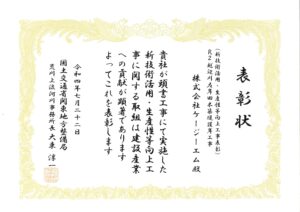 表彰状
(新技術活用・生産性等向上工事表彰)
R2荒川左岸田本築堤護岸工事
株式会社ケージーエム殿
貴社が頭書工事にて実施した
新技術活用・生産性等向上工
事に関する取組は建設産業
への貢献が顕著であります
よってこれを表彰します
令和四年七月二十二日
国土交通省関東地方整備局
荒川上流河川事務所長